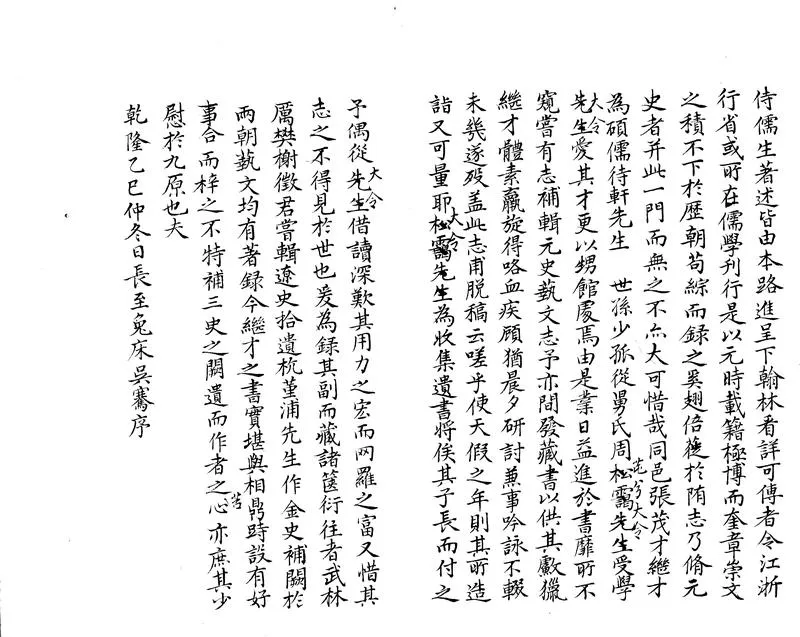 侍儒生著述皆由本路進呈下翰林看詳可傳者令江浙
行省或所在儒學刊行是以元時載籍極博而奎章崇文
之積不下於歷朝苟綜而録之奚翅倍蓰於隋志乃脩元
史者并此一門而無之不亦大可惜哉同邑張茂才繼才
為碩儒待軒先生 世孫少孤從舅氏周松靄先生受學
芚兮大令
先生愛其才更以甥館處焉由是業日益進於書靡所不
大令
窺嘗有志補輯元史藝文志予亦間發藏書以供其獻獵
繼才體素羸旋得咯血疾顧猶晨夕研討兼事吟詠不輟
未幾遂歿盖此志甫脱稿云嗟乎使天假之年則其所造
詣又可量耶松靄先生為收集遺書將俟其子長而付之
大令
予偶從先生借讀深歎其用力之宏而网羅之富又惜其
大令
志之不得見於世也爰為録其副而藏諸篋衍往者武林
厲樊榭徵君嘗輯遼史拾遺杭堇浦先生作金史補闕於
兩朝藝文均有著録今繼才之書實堪與相鼎時設有好
事合而梓之不特補三史之闕遺而作者之心亦庶其少
苦
慰於九原也夫
乾隆乙巳仲冬日長至兔床吳騫序